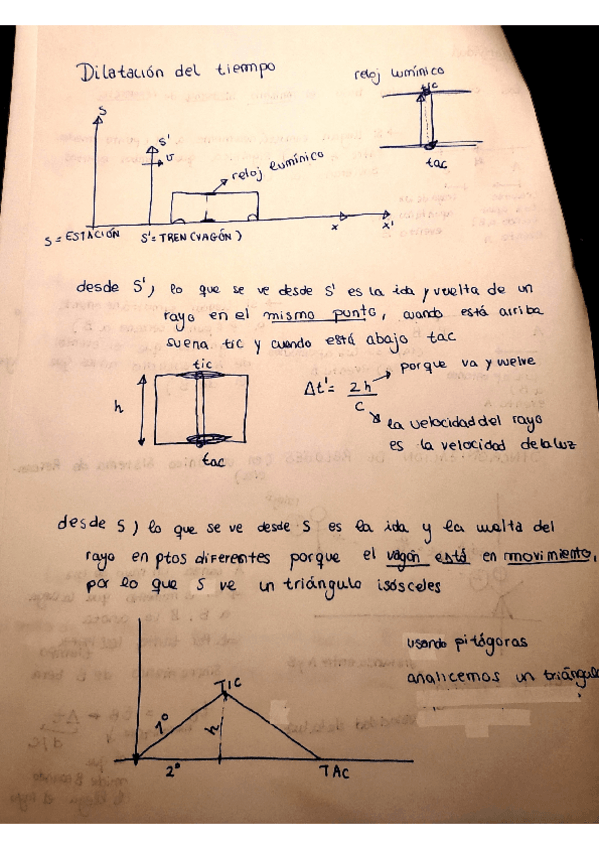 Dilatación del tiempo
reloj lumínico
tic
tac
S
S'
v
reloj lumínico
S = ESTACIÓN
S' = TREN (VAGÓN)
x
x'
desde S') lo que se ve desde S' es la ida y vuelta de un
rayo en el mismo punto, cuando está arriba
suena tic y cuando está abajo tac
tic
h
tac
Δt' = 2h / c
porque va y vuelve
la velocidad del rayo
es la velocidad de la luz
desde S) lo que se ve desde S es la ida y la vuelta del
rayo en ptos diferentes porque el vagón está en movimiento,
por lo que S ve un triángulo isósceles
usando pitágoras
analicemos un triángulo
TIC
1º
h
2º
TAC